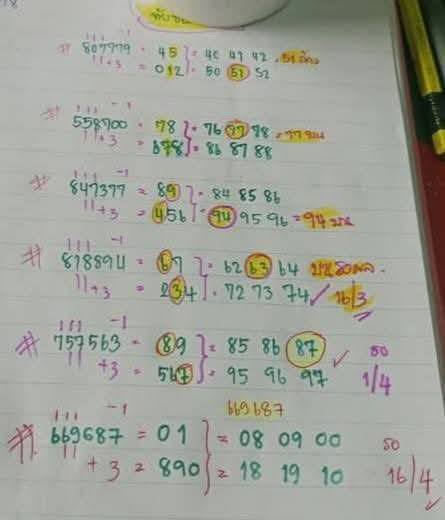 ทับบน
# 807779 = 45 } = 40 41 42 = 51 ล่าง
+3 = 012 } = 50 51 52
# 558700 = 78 } = 76 77 78 = 77 บน
+3 = 678 } = 86 87 88
# 847377 = 89 } = 84 85 86
+3 = 456 } = 94 95 96 = 94 บน
# 818894 = 67 } = 62 63 64
+3 = 234 } = 72 73 74 ✓ 16/3
# 757563 = 89 } = 85 86 87 ✓ รอ
+3 = 567 } = 95 96 97 1/4
669687
# 669687 = 01 } = 08 09 00 รอ
+3 = 890 } = 18 19 10 16/4